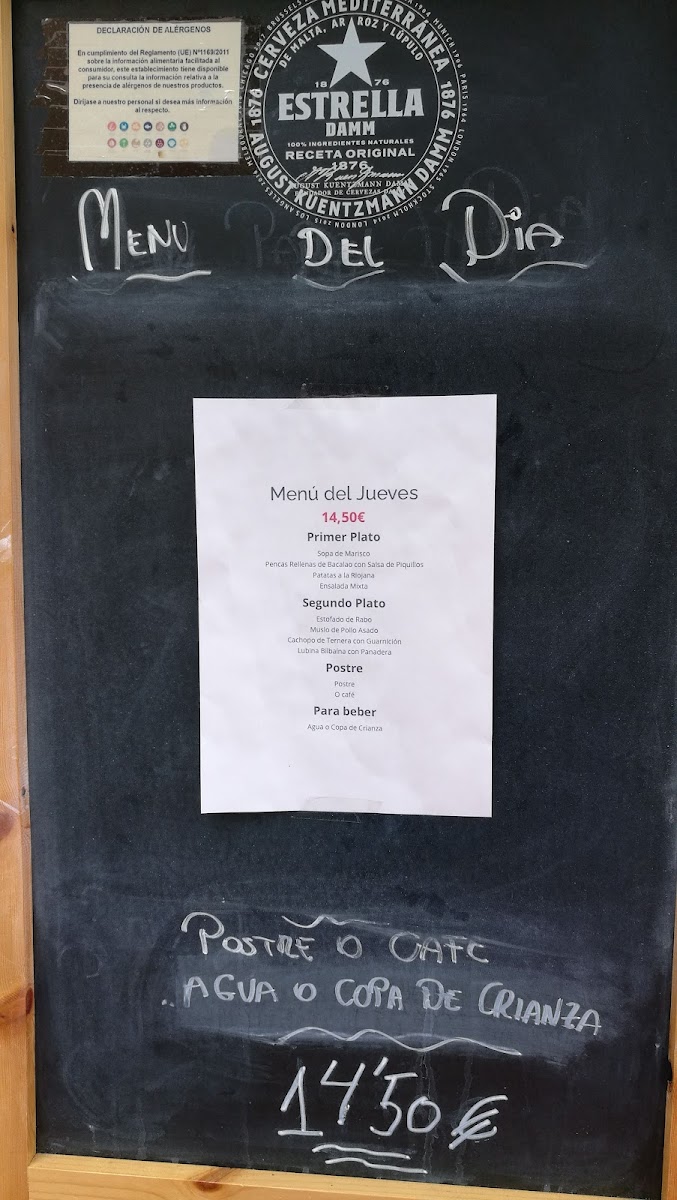 DECLARACIÓN DE ALÉRGENOS
En cumplimiento del Reglamento (UE) Nº1169/2011
sobre la información alimentaria facilitada al
consumidor, este establecimiento tiene disponible
para su consulta la información relativa a la
presencia de alérgenos de nuestros productos.
Diríjase a nuestro personal si desea más información
al respecto.
CERVEZA MEDITERRÁNEA
DE MALTA, ARROZ Y LÚPULO
1876
1876
18 76
ESTRELLA
DAMM
100% INGREDIENTES NATURALES
RECETA ORIGINAL
1876
AUGUST KUENTZMANN DAMM
FUNDADOR DE CERVEZAS DAMM
AUGUST KUENTZMANN DAMM
MENU DEL DIA
Menú del Jueves
14,50€
Primer Plato
Sopa de Marisco
Pencas Rellenas de Bacalao con Salsa de Piquillos
Patatas a la Riojana
Ensalada Mixta
Segundo Plato
Estofado de Rabo
Muslo de Pollo Asado
Cachopo de Ternera con Guarnición
Lubina Bilbaína con Panadera
Postre
Postre
O café
Para beber
Agua o Copa de Crianza
POSTRE O CAFE
AGUA O COPA DE CRIANZA
14'50 €